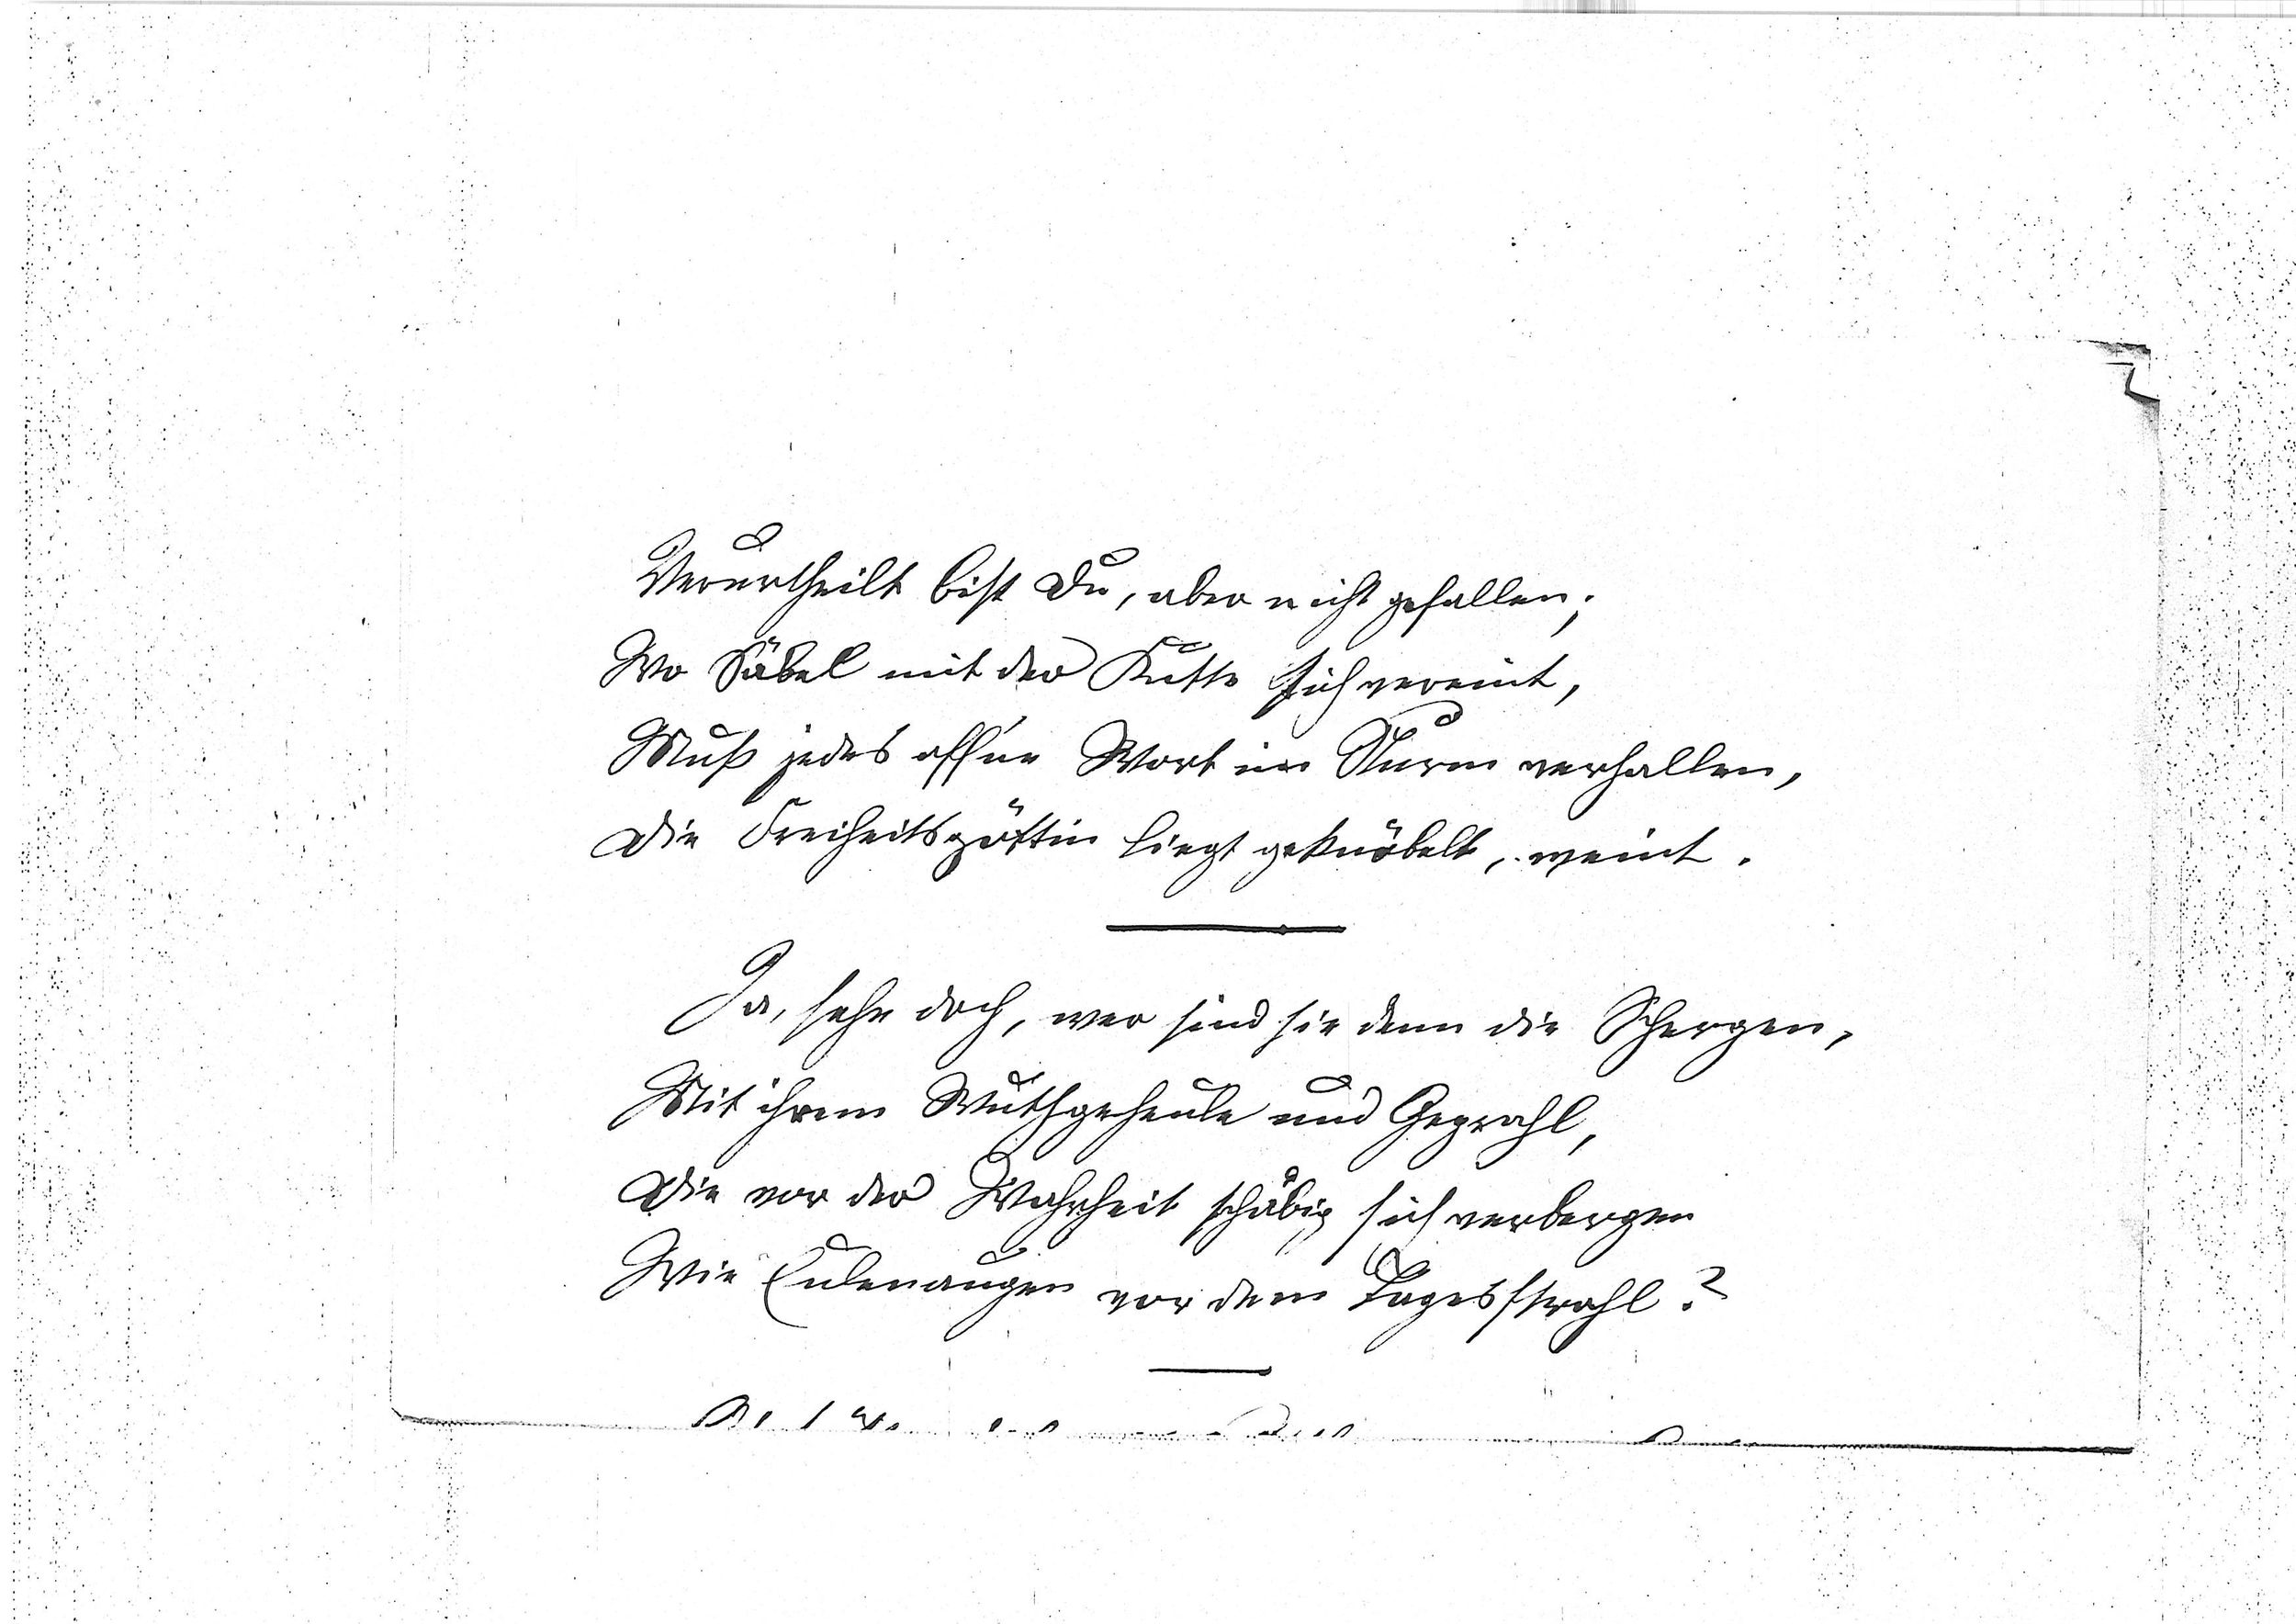 Verurtheilt bist Du, aber nicht gefallen;
Wo Säbel mit der Kutte sich vereint,
Muß jedes off'ne Wort im Sturm verhallen,
Die Freiheitsgöttin liegt geknöbelt, weint.
Ja, sehe doch, wer sind sie denn die Schergen,
Mit ihrem Wuthgeheule und Geprahl,
Die vor der Wahrheit schäbig sich verbergen
Wie Eulenaugen vor dem Tagesstrahl?